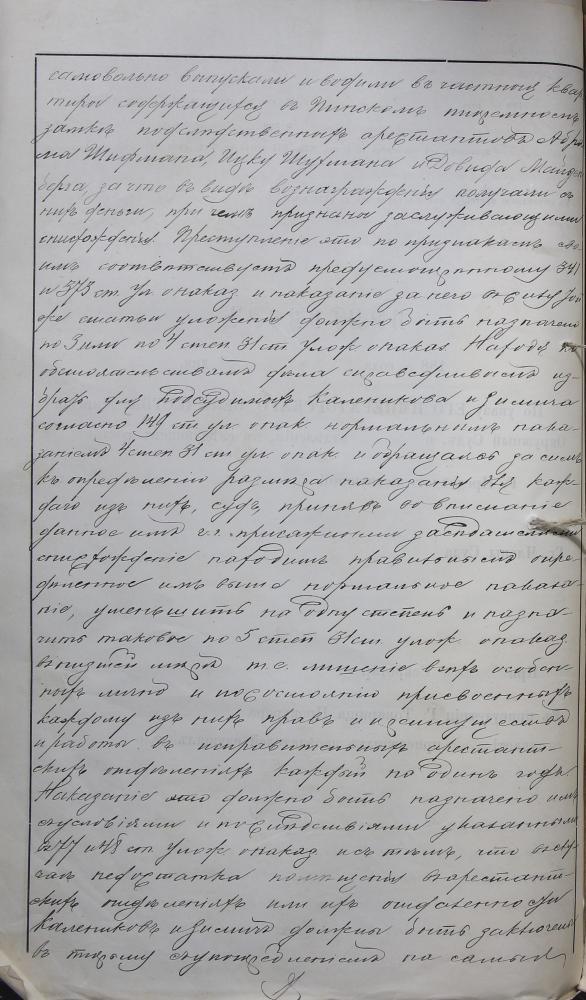 самовольно выпускали и водили въ частныя квар
тиры содержащихся въ Пинскомъ тюремномъ
замкѣ подслѣдственныхъ арестантовъ Абра
ма Шифмана, Ицку Шухмана и Довида Майден
берга, за что въ видѣ вознагражденія получали съ
нихъ деньги, при чемъ признаны заслуживающими
снисхожденія. Преступленіе это по признакамъ сво
имъ соотвѣтствуетъ предусмотрѣнному 341
и 373 ст. Ул о наказ и наказаніе за него въ силу той
же статьи уложенія должно быть назначено
по 3 или по 4 степ 31 ст Улож о наказ. Находя по
обстоятельствамъ дѣла справедливымъ из-
брать для подсудимыхъ Каленикова и
согласно 149 ст ул о нак нормальнымъ нака-
заніемъ 4 степ 31 ст ул. о нак. и обращаясь за симъ
къ опредѣленію размѣра наказанія для каж-
даго изъ нихъ, судъ, принявъ во вниманіе
данное имъ г.г. присяжными засѣдателями
снисхожденіе находитъ правильнымъ опре-
дѣленное имъ выше нормальное наказа-
ніе, уменьшить на одну степень и назна-
чить таковое по 5 степ 31 ст. улож о наказ.
въ низшей мѣрѣ т.е. лишеніе всѣхъ особен-
ныхъ лично и по состоянію присвоенныхъ
каждому изъ нихъ правъ и преимуществъ
и работы въ исправительныхъ арестант-
скихъ отдѣленіяхъ каждый на одинъ годъ.
Наказаніе это должно быть назначено имъ
съ условіями и послѣдствіями указанными
въ 77 и 48 ст Улож о наказ и съ тѣмъ, что въ слу-
чаѣ недостатка помѣщенія въ арестант-
скихъ отдѣленіяхъ или ихъ отдаленности
Калениковъ и должны быть заключены
въ тюрьму съ употребленіемъ на самыя